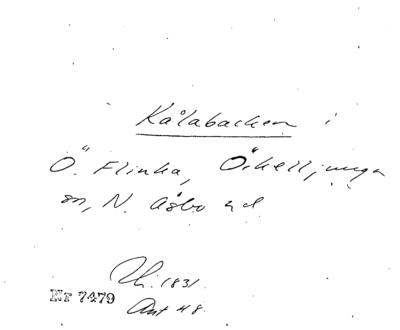 Kålabacken i
Ö. Flinka, Örkelljunga
sn, N. Åsbo hd
1831.
Nr 7479
Ant 48.